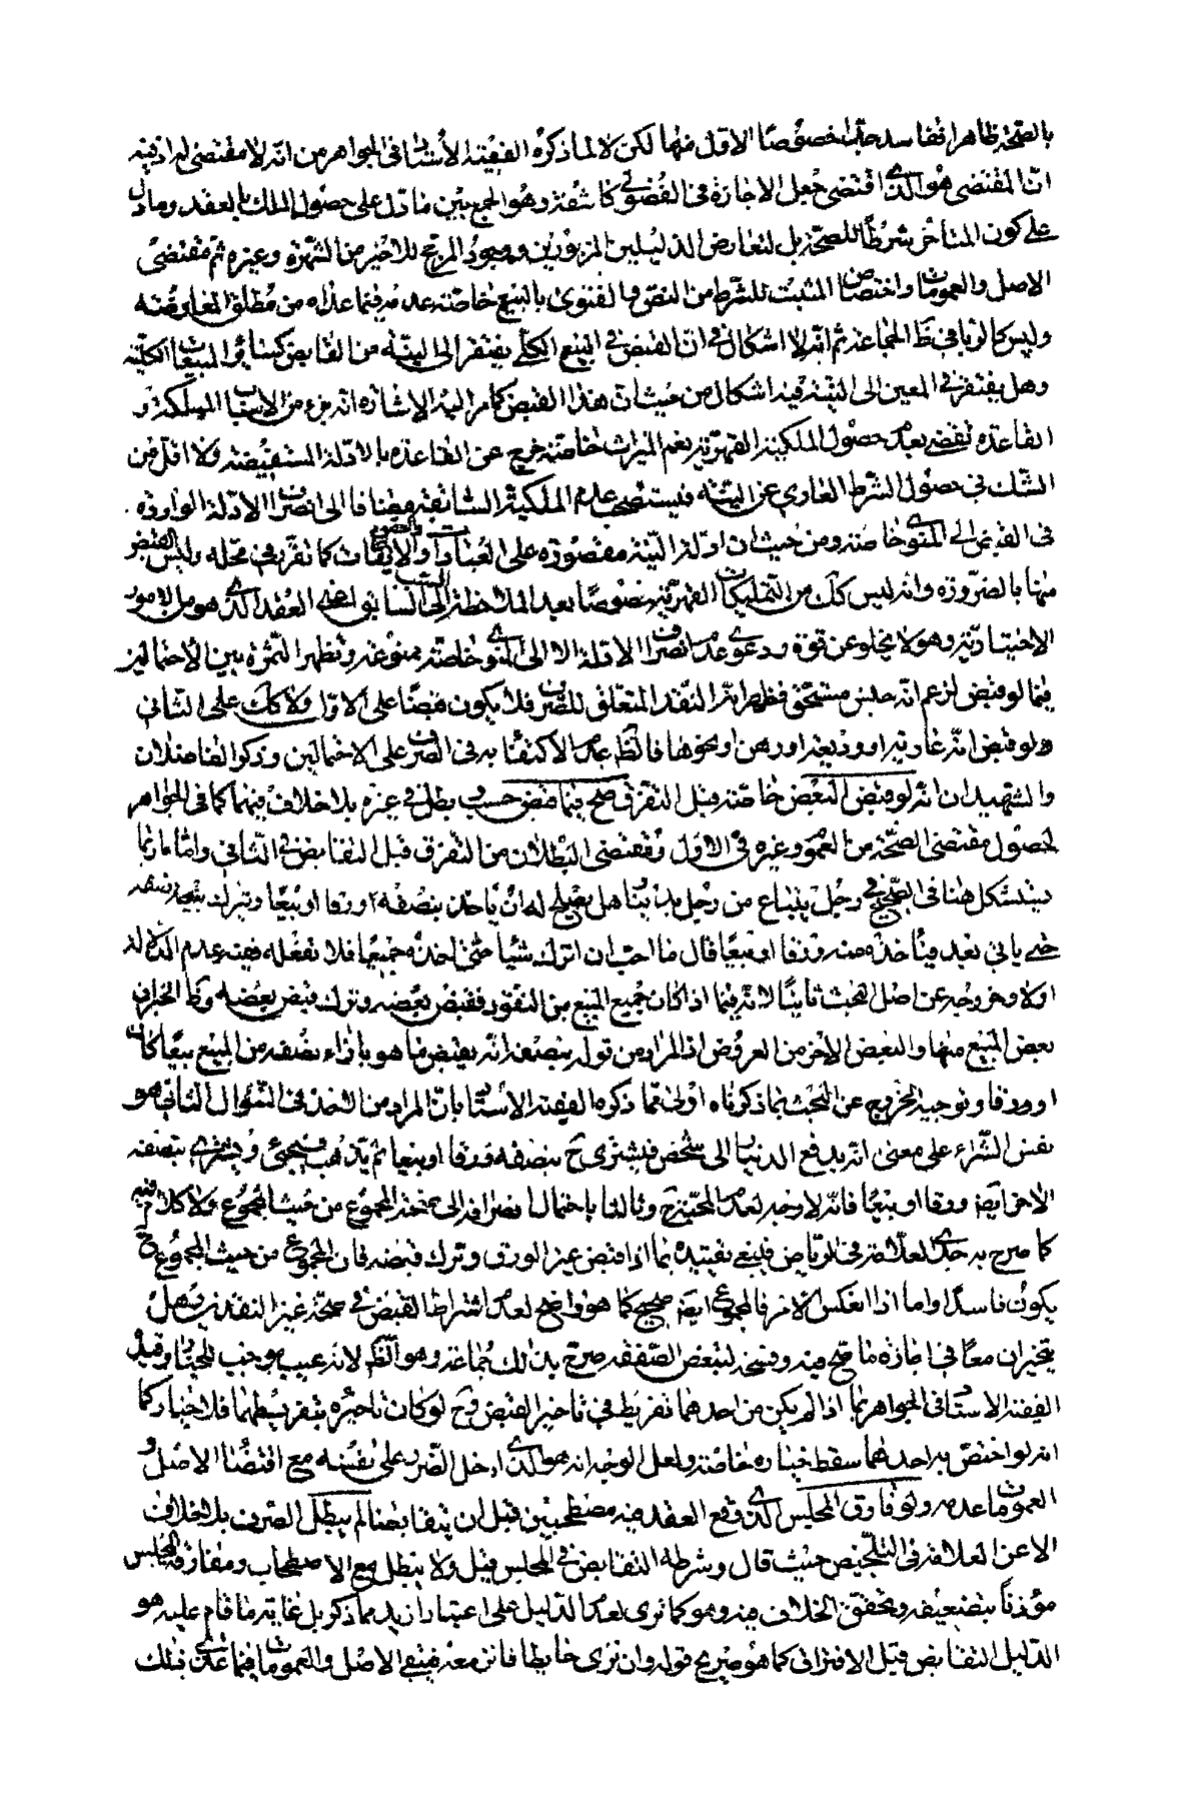 بالصحة ظاهرا ففاسد جدا خصوصا الاول منهما لكن لا لما ذكره الفقيه الأستاد في الجواهر من انه لا مقتضي له اذ فيه
ان المقتضي هو الذي اقتضى جعل الاجازة في الفضولي كاشفة وهو الجمع بين ما دل على حصول الملك بالعقد وما دل
على كون المتأخر شرطا للصحة بل لتعارض الدليلين المزبورين ووجود المرجح للاخير من الشهرة وغيره ثم مقتضى
الاصل والعمومات واختصاص المثبت للشرط من النص والفتوى بالبيع خاصة عدمه فيما عداه من مطلق المعاوضة
وليس كالربا في ظ الجماعة ثم انه لا اشكال في ان القبض في البيع الكلي يفتقر الى النية من القابض كسائر المبيعات الكلية
وهل يفتقر في المعين الى النية فيه اشكال من حيث ان هذا القبض كما مر اليه الاشارة انه جزء من الاسباب المملكة و
القاعدة تقضي بعدم حصول الملكية القهرية نعم الميراث خاصة خرج عن القاعدة بالادلة المستفيضة ولا اقل من
الشك في حصول الشرط العاري عن النية فيستصحب عدم الملكية السابقة مضافا الى انصراف الادلة الواردة
في القبض الى المنوي خاصة ومن حيث ان ادلة النية مقصورة على العبادات والعقود والايقاعات كما تقرر في محله وليس القبض
منها بالضرورة وانه ليس كك من التمليكات القهرية خصوصا بعد الملاحظة الى السبب السابق اعني العقد الذي هو من الامور
الاختيارية وهو لا يخلو عن قوة ودعوى عدم انصراف الادلة الا الى المنوي خاصة ممنوعة وتظهر الثمرة بين الاحتمالين
فيما لو قبض لزعم انه جلس مستحق فظهر انه النقد المتعلق للصرف فلا يكون قبضا على الاول ولا كك على الثاني
ولو قبض انه عارية او وديعة او رهن او نحوها فالظ عدم الاكتفاء به في الصرف على الاحتمالين وذكر الفاضلان
والشهيدان انه لو قبض البعض خاصة قبل التفرق صح فيما قبض حسب وبطل في غيره بلا خلاف فيهما كما في الجواهر
لحصول مقتضى الصحة من العموم وغيره في الاول ومقتضى البطلان من التفرق قبل التقابض في الثاني واما ما ربما
يستشكل هنا في الصحيح في رجل يبتاع من رجل بدينار هل يصلح له ان يأخذ بنصفه ورقا او بيعا ويترك نصفه
حتى يأتي بعد فيأخذه منه ورقا او بيعا قال ما احب ان اترك شيئا حتى اخذه جميعا فلا تفعله ففيه عدم الدلالة
اولا وخروجه عن اصل البحث ثانيا لانه فيما اذا كان جميع المبيع من النقود فقبض بعضه وترك قبض بعضه وظ الخبر ان
بعض المبيع منها والبعض الاخر من العروض اذ المراد من قوله بنصفه انه يقبض ما هو بازاء نصفه من المبيع بيعا كان
او ورقا وتوجيه الخروج عن البحث بما ذكرناه اولى مما ذكره الفقيه الأستاد بان المراد من الاخذ في السؤال الثاني هو
نفس الشراء على معنى انه يدفع الدينار الى شخص فيشتري ح بنصفه ورقا او بيعا ثم يذهب فيجيئ ويشتري بنصفه
الاخر ايض ورقا او بيعا فانه لا وجه لعدم المحبة ح وثالثا باحتمال انصرافه الى صحة المجموع من حيث المجموع ولا كلام فيه
كما صرح به جدي العلامة في الرياض فليبغ تقييده بما اذا قبض غير الورق وترك قبضه فان المجموع من حيث المجموع ح
يكون فاسدا واما اذا انعكس الامر فالمجموع ايض صحيح كما هو واضح لعدم اشتراط القبض في صحة غير النقدين وهل
يتخيران معا في اجازة ما صح فيه وفسخه لتبعض الصفقة صرح بذلك جماعة وهو الظ لانه عيب يوجب الخيار وقيد
الفقيه الأستاد في الجواهر بما اذا لم يكن من احدهما تفريط في تأخير القبض وح لو كان تأخيره بتفريطهما فلا خيار كما
انه لو اختص به احدهما سقط خياره خاصة ولعل الوجه انه هو الذي ادخل الضرر على نفسه مع اقتضاء الاصل و
العمومات عدمه ولو فارق المجلس الذي وقع العقد فيه مصطحبين قبل ان يتقابضا لم يبطل الصرف بلا خلاف
الا عن العلامة في التلخيص حيث قال وشرطه التقابض في المجلس قيل ولا يبطل مع الاصطحاب ومفارقة المجلس
مؤذنا بتضعيفه وتحقق الخلاف فيه وهو كما ترى لعدم الدليل على اعتبار ازيد مما ذكر بل غاية ما قام عليه هو
الدليل التقابض قبل الافتراق كما هو صريح قوله وان نزى حايطا فانز معه فيبقى الاصل والعمومات فيما عدى ذلك